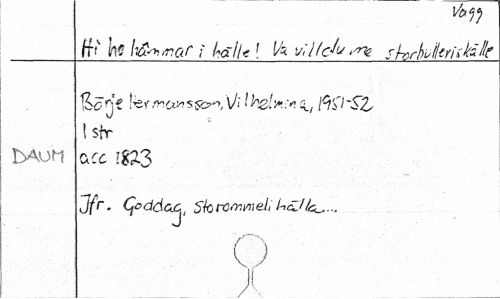 Vagg
Hi he hämmar i hälle! Va vill du me storbulleriskälle
Börje Hermansson, Vilhelmina, 1951-52
1 str
DAUM acc 1823
Jfr. Goddag, storommeli hälla...